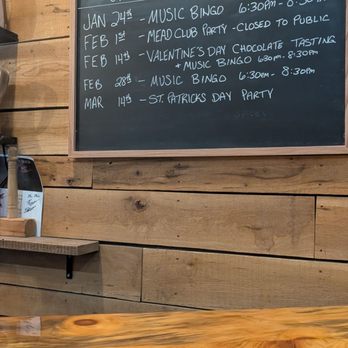 JAN 24TH - MUSIC BINGO 6:30PM - 8:30PM
FEB 1ST - MEAD CLUB PARTY - CLOSED TO PUBLIC
FEB 14TH - VALENTINE'S DAY CHOCOLATE TASTING
+ MUSIC BINGO 6:30PM - 8:30PM
FEB 28TH - MUSIC BINGO 6:30PM - 8:30PM
MAR 14TH - ST. PATRICKS DAY PARTY